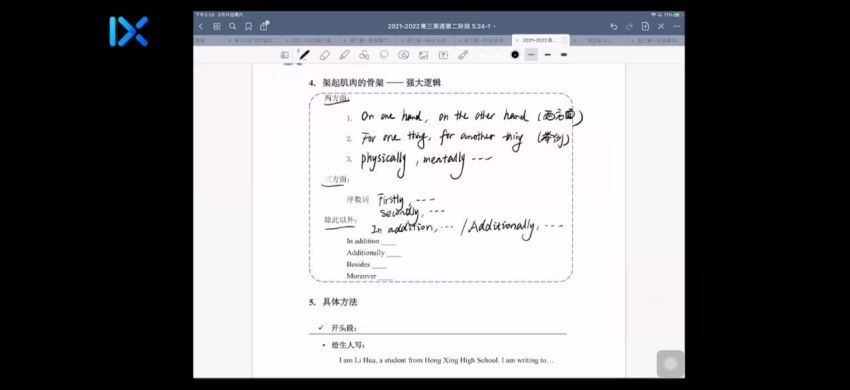 下午5:35 5月31日周六
71%
2021-2022高三英语第二阶段 5.24-1
2021-2022 高...
4. 架起肌肉的骨架 —— 强大逻辑
两方面:
1. On one hand, on the other hand (两方面)
2. For one thing, for another thing (举例)
3. physically, mentally ---
三方面:
序数词 Firstly, ---
secondly, ---
除此以外: In addition, --- / Additionally, ---
In addition ____
Additionally ____
Besides ____
Moreover ____
5. 具体方法
✓ 开头段:
• 给生人写:
I am Li Hua, a student from Hong Xing High School. I am writing to…